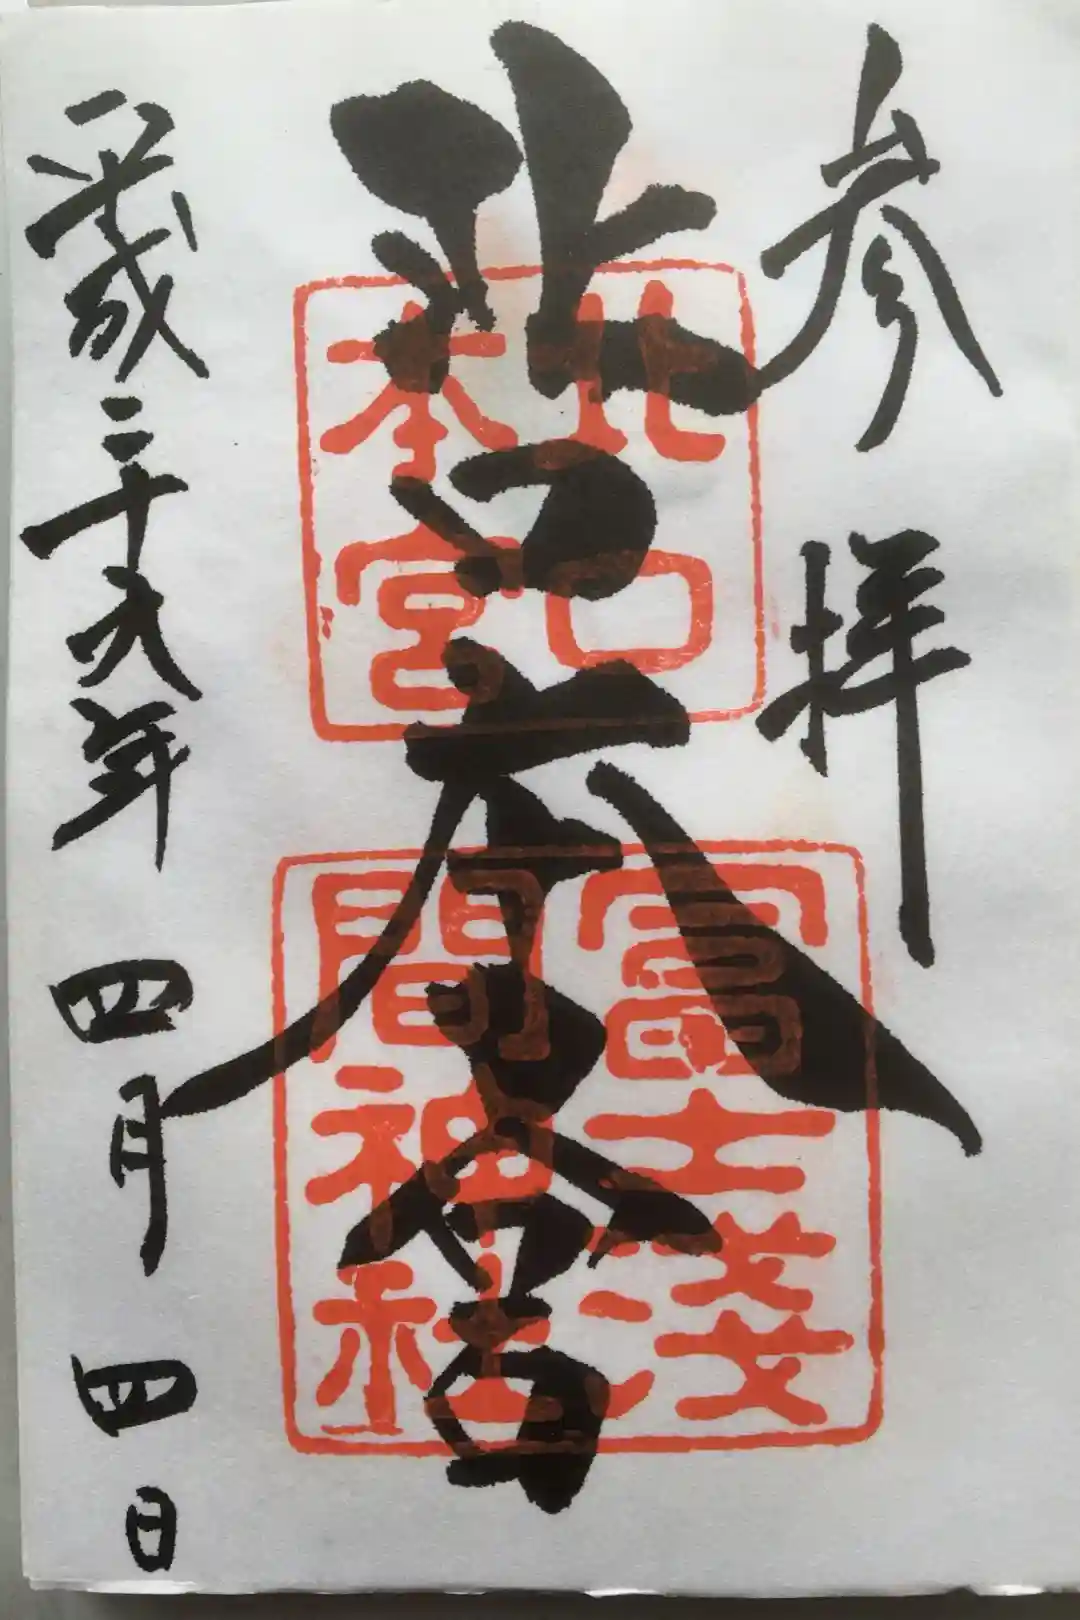 参拝
北口本宮
北口
本宮
冨士淺
間神社
平成二十九年四月四日